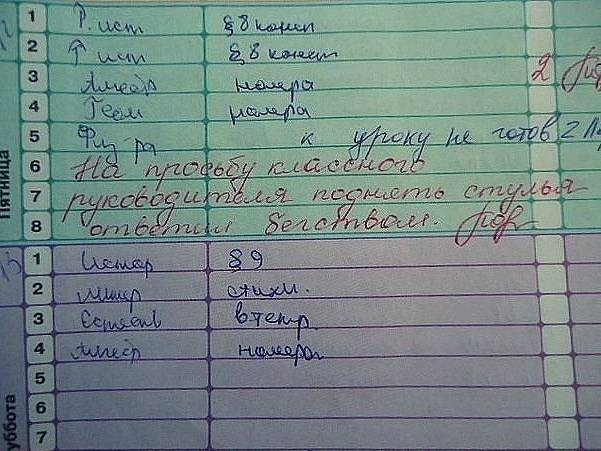 1 Р. ист § 8 консп
2 Р ист § 8 консп
3 Алгебр номера 2
4 Геом номера
5 Физ-ра к уроку не готов 2
Пятница
6 На просьбу классного
7 руководителя поднять стулья
8 ответил бегством.
1 Истор § 9
2 Литер стихи.
3 Естеств в тетр.
4 Алгебр номера
5
6
7
уббота